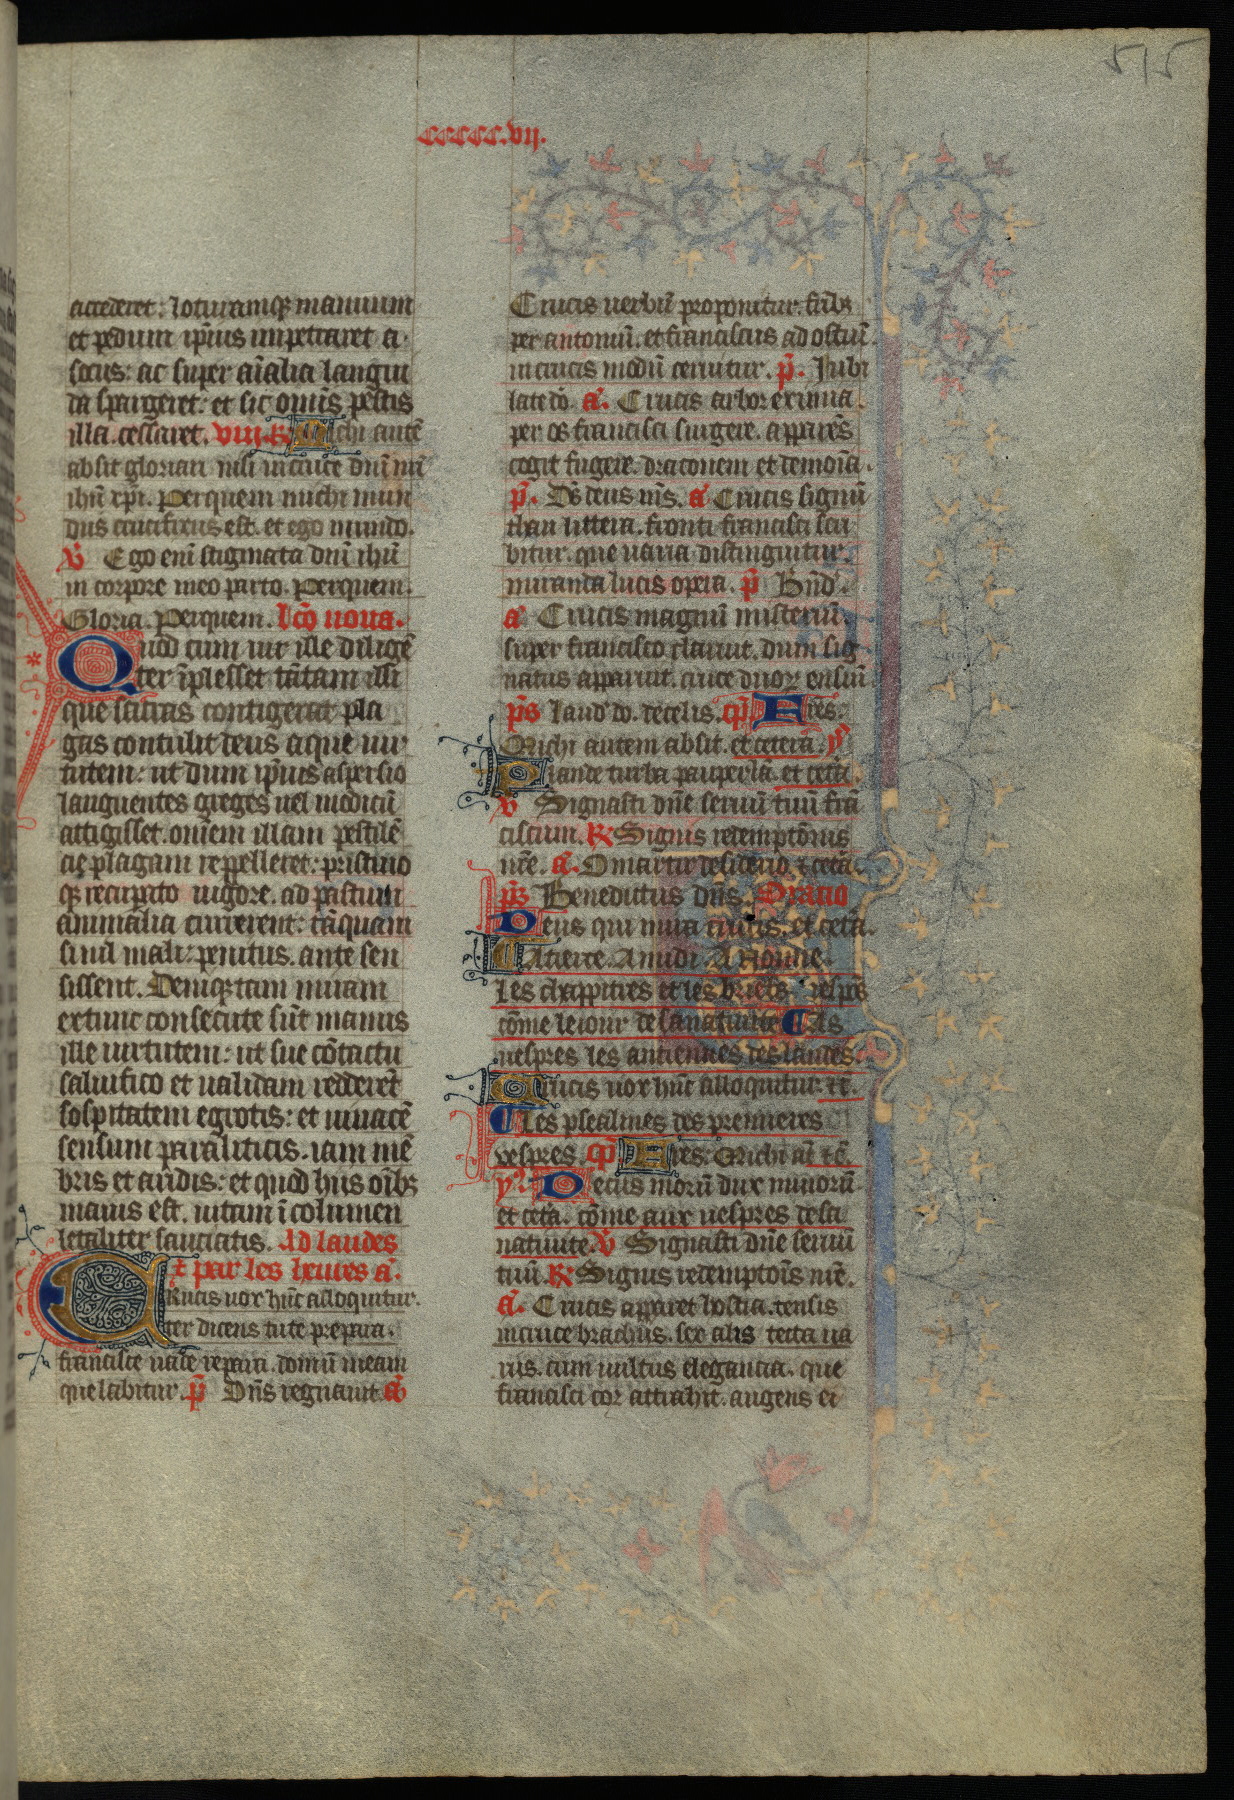 515
CCCCC.vij.
accederet: loturamq̧ manuum
et pedum ip̄ius impetraret a
socus: ac super aīalia langui
da spargeret: et sic om̄is pestis
illa cessaret. viii. R̄ Michi autē
absit gloriari nisi in cruce dn̄i nr̄i
ihū xp̄i. Perquem michi mun
dus crucifixus est. et ego mundo.
V̄ Ego enī stigmata dn̄i ihū
in corpore meo porto. Perquem.
Gloria. Perquem. lc̄o nona.
Quod cum uir ille diligē
ter īplesset tātam issi
que scītitas contigerat pla
gas contulit deus aque uir
tutem: ut dum ip̄ius aspersio
languentes greges uel modicū
attigisset. omēm illam pestilē
cię plagam reppelleret: pristino
q̧ recupato uigore. ad pastum
animalia currerent: tāquam
sinil mali: penitus. ante sen
sissent. Deniq̧ tam miram
extunc consecute sūt manus
ille uirtutem: ut sue cōtactu
saluifico et ualidam redderēt
sospitatem egrotis: et uiuacē
sensum paraliticis. iam mē
bris et aridis: et quod hiis oīb;
maius est. uitam īcolumen
letaliter sauciatis. Ad laudes
⁊ par les heures a͛.
Crucis uox hūc alloquitur.
ter dicens tu te prepara.
francisce uade repara. domū meam
que labitur. p̄͛ Dn̄s regnauit. a͛
Crucis uerbū proponitur. frīb;
per antoniū. et franciscus ad ostiū.
in crucis modū cernitur. p̄͛. Jubi
late dō. a͛. Crucis arbor eximia
per os francisci surgere. apparēs
cogit fugere. draconem et demoīa.
p̄͛. Ds̄ deus m̄s. a͛ Crucis signū
thau littera. fronti francisci scri
bitur. que uaria distinguitur.
miranda lucis opera. p̄͛ Bn̄d͛.
a͛ Crucis magnū misteriū.
super francisco claruit. dum sig
natus apparuit. cruce duoꝝ ensiū
p̄s Laud͛ dō. de celis. cp̄͛. Fr̄es.
Michi autem absit. et cetera. yp̄
Plaude turba paupercla. et cet̄a.
V̄ Signasti dn̄e seruū tuū frā
ciscum. R̄ Signis redemptōnis
nr̄e. a͛. O martir desiderio. ⁊ cet̄a.
p̄͛s Benedictus dn̄s. Oratio
Deus qui mira crucis. et cet̄a.
A tierce. A midi. A nonne.
Les chappitres et les briefs resp̄s
cōme le iour de sa natiuite ¶ As
uespres les antiennes des laudes.
Crucis uox hūc alloquitur. ⁊c̄.
¶ Les psealmes des premieres
vespres. cp̄͛ Fr̄es. Michi aū ⁊c̄.
y͛ Decus morū dux minorū.
et cet̄a. cōme aux uespres de sa
natiuite. V̄ Signasti dn̄e seruū
tuū. R̄ Signis redemptoīs nr̄e.
a͛. Crucis apparet hostia. tensis
in cruce brachiis. sex alis tecta ua
riis. cum uultus elegancia. que
francisci cor attrahit. augens ei